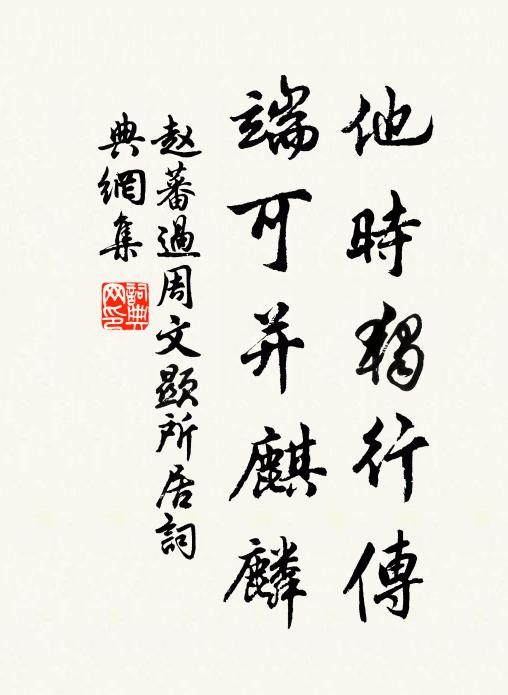 他時獨行傳
端可并麒麟
赵蕃過周文顕所居詞
典網集
詞典網印